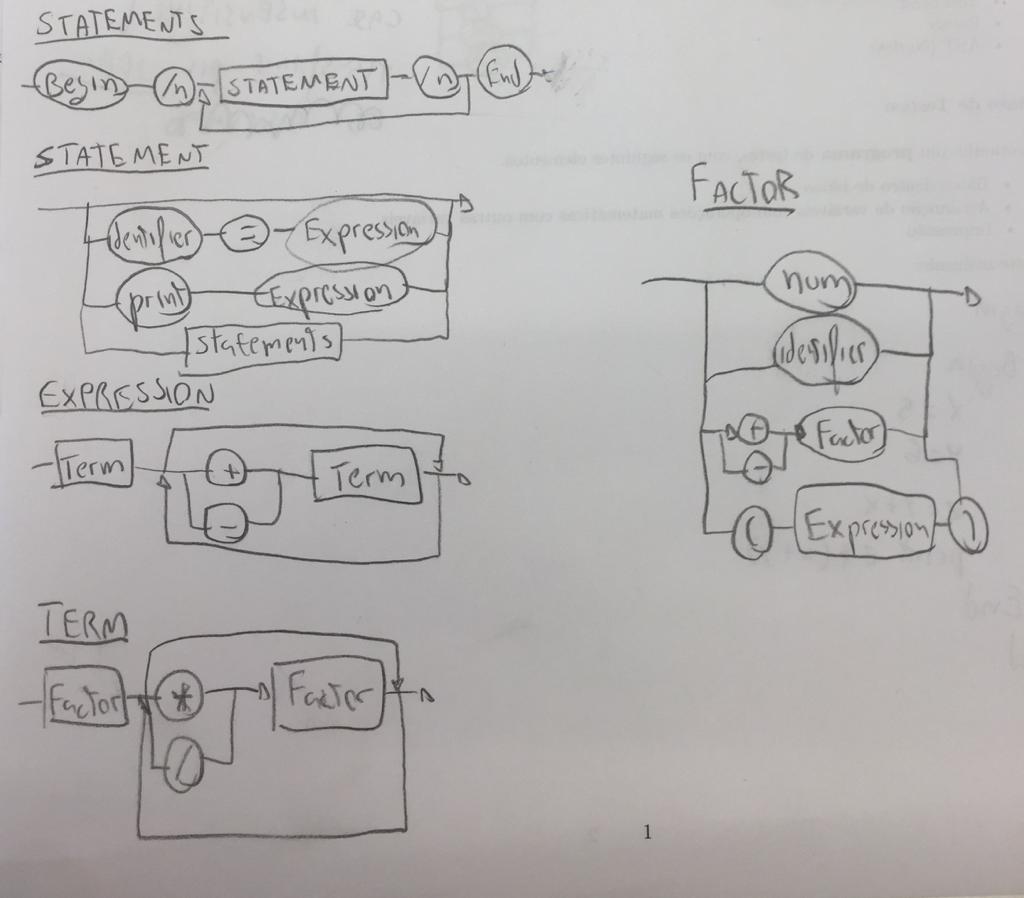 STATEMENTS
Begin /n STATEMENT /n End
STATEMENT
identifier = Expression
print Expression
statements
EXPRESSION
Term + Term
-
TERM
Factor * Factor
/
FACTOR
num
identifier
+ Factor
-
( Expression )
1